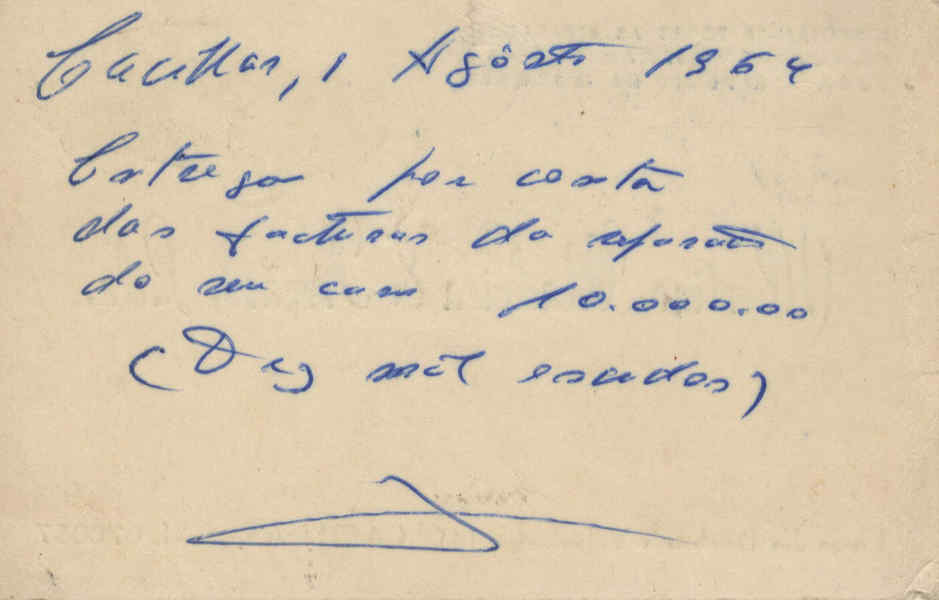 Cacilhas, 1 Agôsto 1964
Entregou por conta
das facturas da reparação
do seu carro 10.000.00
(Dez mil escudos)